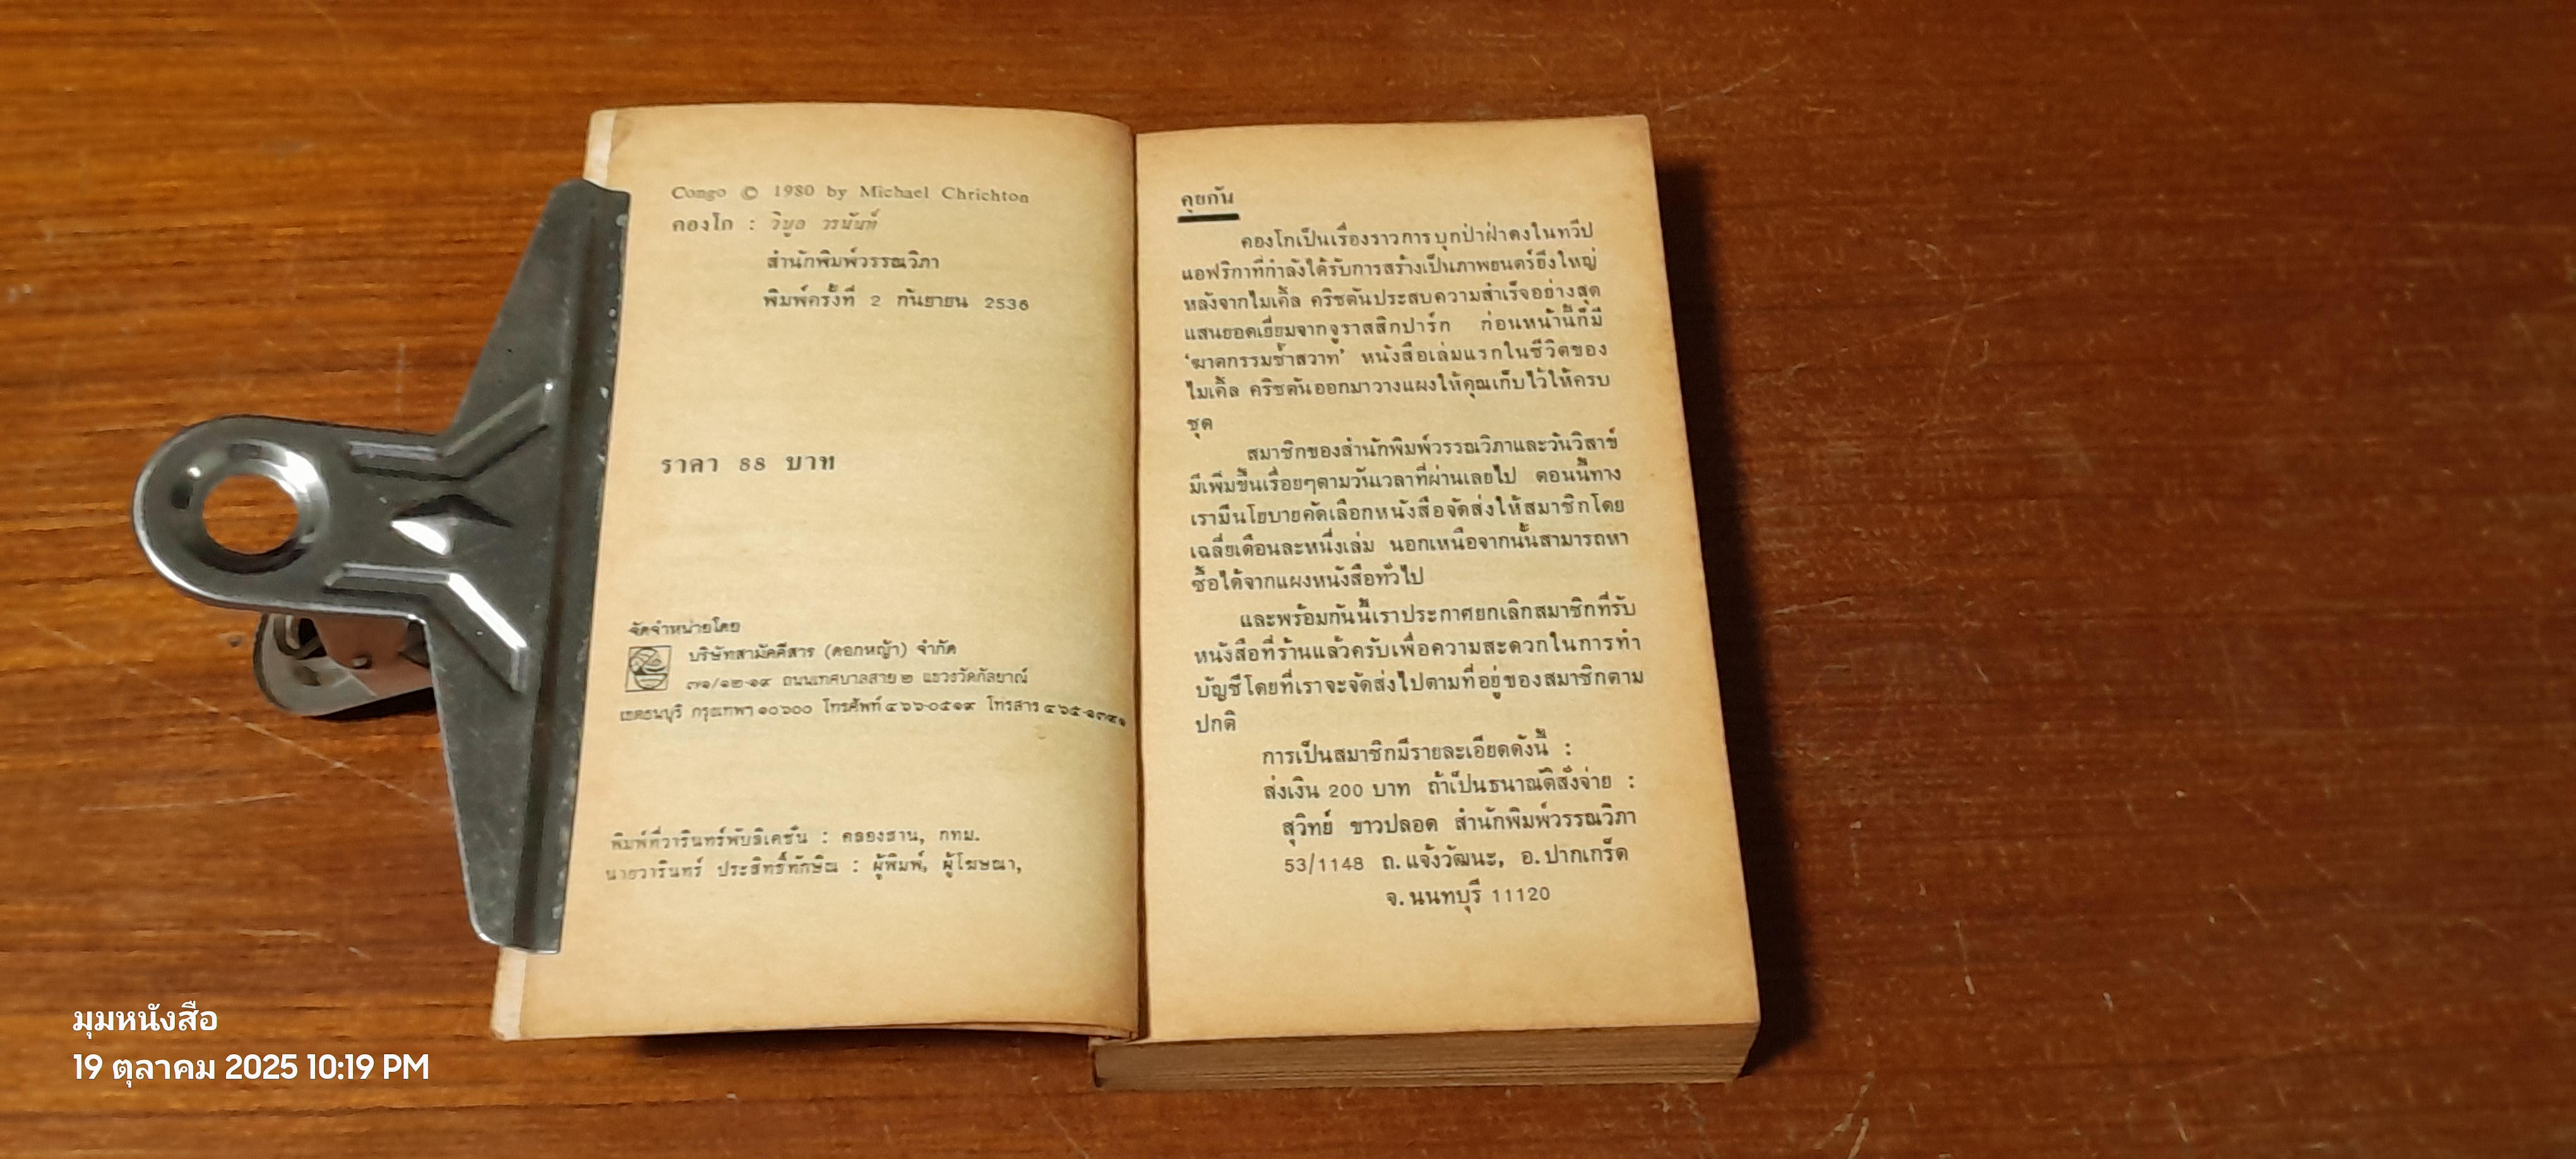 Congo © 1980 by Michael Chrichton
คองโก : วิบูล วรนันท์
สำนักพิมพ์วรรณวิภา
พิมพ์ครั้งที่ 2 กันยายน 2536
ราคา 88 บาท
จัดจำหน่ายโดย
บริษัทสามัคคีสาร (ดอกหญ้า) จำกัด
๗๑/๑๒-๑๙ ถนนเทศบาลสาย ๒ แขวงวัดกัลยาณ์
เขตธนบุรี กรุงเทพฯ ๑๐๖๐๐ โทรศัพท์ ๔๖๖-๐๕๑๙ โทรสาร
พิมพ์ที่วารินทร์พับลิเคชั่น : คลองสาน, กทม.
นายวารินทร์ ประสิทธิ์ทักษิณ : ผู้พิมพ์, ผู้โฆษณา,
คุยกัน
คองโกเป็นเรื่องราวการบุกป่าฝ่าดงในทวีป
แอฟริกาที่กำลังได้รับการสร้างเป็นภาพยนตร์ยิ่งใหญ่
หลังจากไมเคิ้ล คริชตันประสบความสำเร็จอย่างสุด
แสนยอดเยี่ยมจากจูราสสิกปาร์ก ก่อนหน้านี้ก็มี
‘ฆาตกรรมซ้ำสวาท’ หนังสือเล่มแรกในชีวิตของ
ไมเคิ้ล คริชตันออกมาวางแผงให้คุณเก็บไว้ให้ครบ
ชุด
สมาชิกของสำนักพิมพ์วรรณวิภาและวันวิสาข์
มีเพิ่มขึ้นเรื่อยๆตามวันเวลาที่ผ่านเลยไป ตอนนี้ทาง
เรามีนโยบายคัดเลือกหนังสือจัดส่งให้สมาชิกโดย
เฉลี่ยเดือนละหนึ่งเล่ม นอกเหนือจากนั้นสามารถหา
ซื้อได้จากแผงหนังสือทั่วไป
และพร้อมกันนี้เราประกาศยกเลิกสมาชิกที่รับ
หนังสือที่ร้านแล้วครับเพื่อความสะดวกในการทำ
บัญชีโดยที่เราจะจัดส่งไปตามที่อยู่ของสมาชิกตาม
ปกติ
การเป็นสมาชิกมีรายละเอียดดังนี้ :
ส่งเงิน 200 บาท ถ้าเป็นธนาณัติสั่งจ่าย :
สุวิทย์ ขาวปลอด สำนักพิมพ์วรรณวิภา
53/1148 ถ.แจ้งวัฒนะ, อ.ปากเกร็ด
จ.นนทบุรี 11120
มุมหนังสือ
19 ตุลาคม 2025 10:19 PM